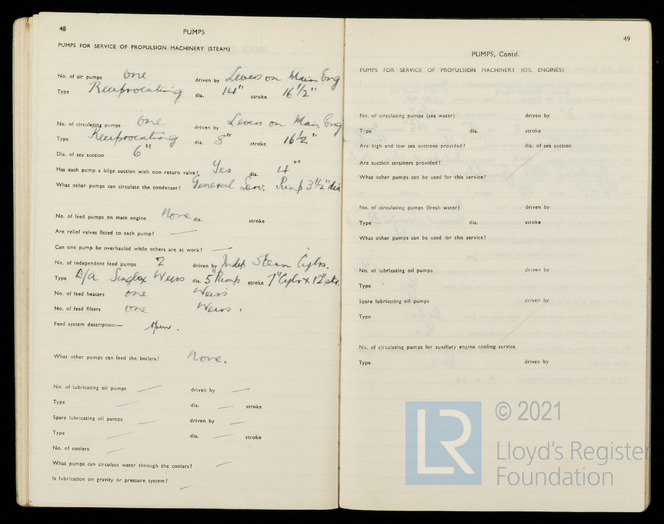 48
PUMPS
PUMPS FOR SERVICE OF PROPULSION MACHINERY (STEAM)
No. of air pumps one driven by Levers on Main Eng
Type Reciprocating dia. 14" stroke 16½"
No. of circulating pumps one driven by Levers on Main Eng
Type Reciprocating dia. 8" stroke 16½"
Dia. of sea suction 6"
Has each pump a bilge suction with non return valve? Yes dia. 4"
What other pumps can circulate the condenser? General Serv. Pump 3½" dia
No. of feed pumps on main engine None dia. stroke
Are relief valves fitted to each pump? —
Can one pump be overhauled while others are at work? —
No. of independent feed pumps 2 driven by Indep Steam Cylrs.
Type D/a Simplex Weirs dia. 5" Pump stroke 7" Cylr x 12" stk.
No. of feed heaters one Weirs
No. of feed filters one Weirs.
Feed system description:— Open.
What other pumps can feed the boilers? None.
No. of lubricating oil pumps — driven by —
Type — dia. — stroke
Spare lubricating oil pumps — driven by —
Type — dia. — stroke
No. of coolers —
What pumps can circulate water through the coolers? —
Is lubrication on gravity or pressure system? —
49
PUMPS, Contd.
PUMPS FOR SERVICE OF PROPULSION MACHINERY (OIL ENGINES)
No. of circulating pumps (sea water) driven by
Type dia. stroke
Are high and low sea suctions provided? dia. of sea suction
Are suction strainers provided?
What other pumps can be used for this service?
No. of circulating pumps (fresh water) driven by
Type dia. stroke
What other pumps can be used for this service?
No. of lubricating oil pumps driven by
Type
Spare lubricating oil pumps driven by
Type
No. of circulating pumps for auxiliary engine cooling service
Type driven by
LR © 2021
Lloyd's Register
Foundation